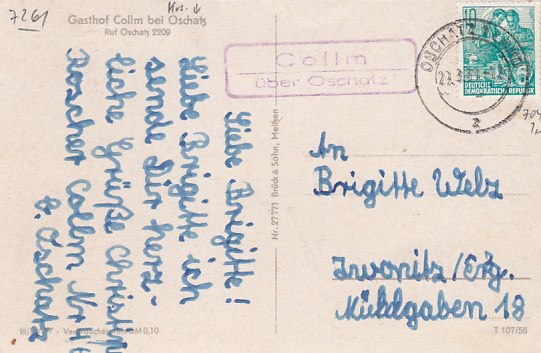 7261
Krs. ↓
Gasthof Collm bei Oschatz
Ruf Oschatz 2209
Collm
über Oschatz
OSCHATZ
10
DEUTSCHE
DEMOKRATISCHE REPUBLIK
Liebe Brigitte!
Liebe Brigitte ich
sende dir herz-
liche Grüße
Roscher Collm Nr
b. Oschatz
Nr. 27771 Brück & Sohn, Meißen
An
Brigitte Welz
Irwonitz/Erzg.
Mühlgaben 18
DM 0,10
T 107/56